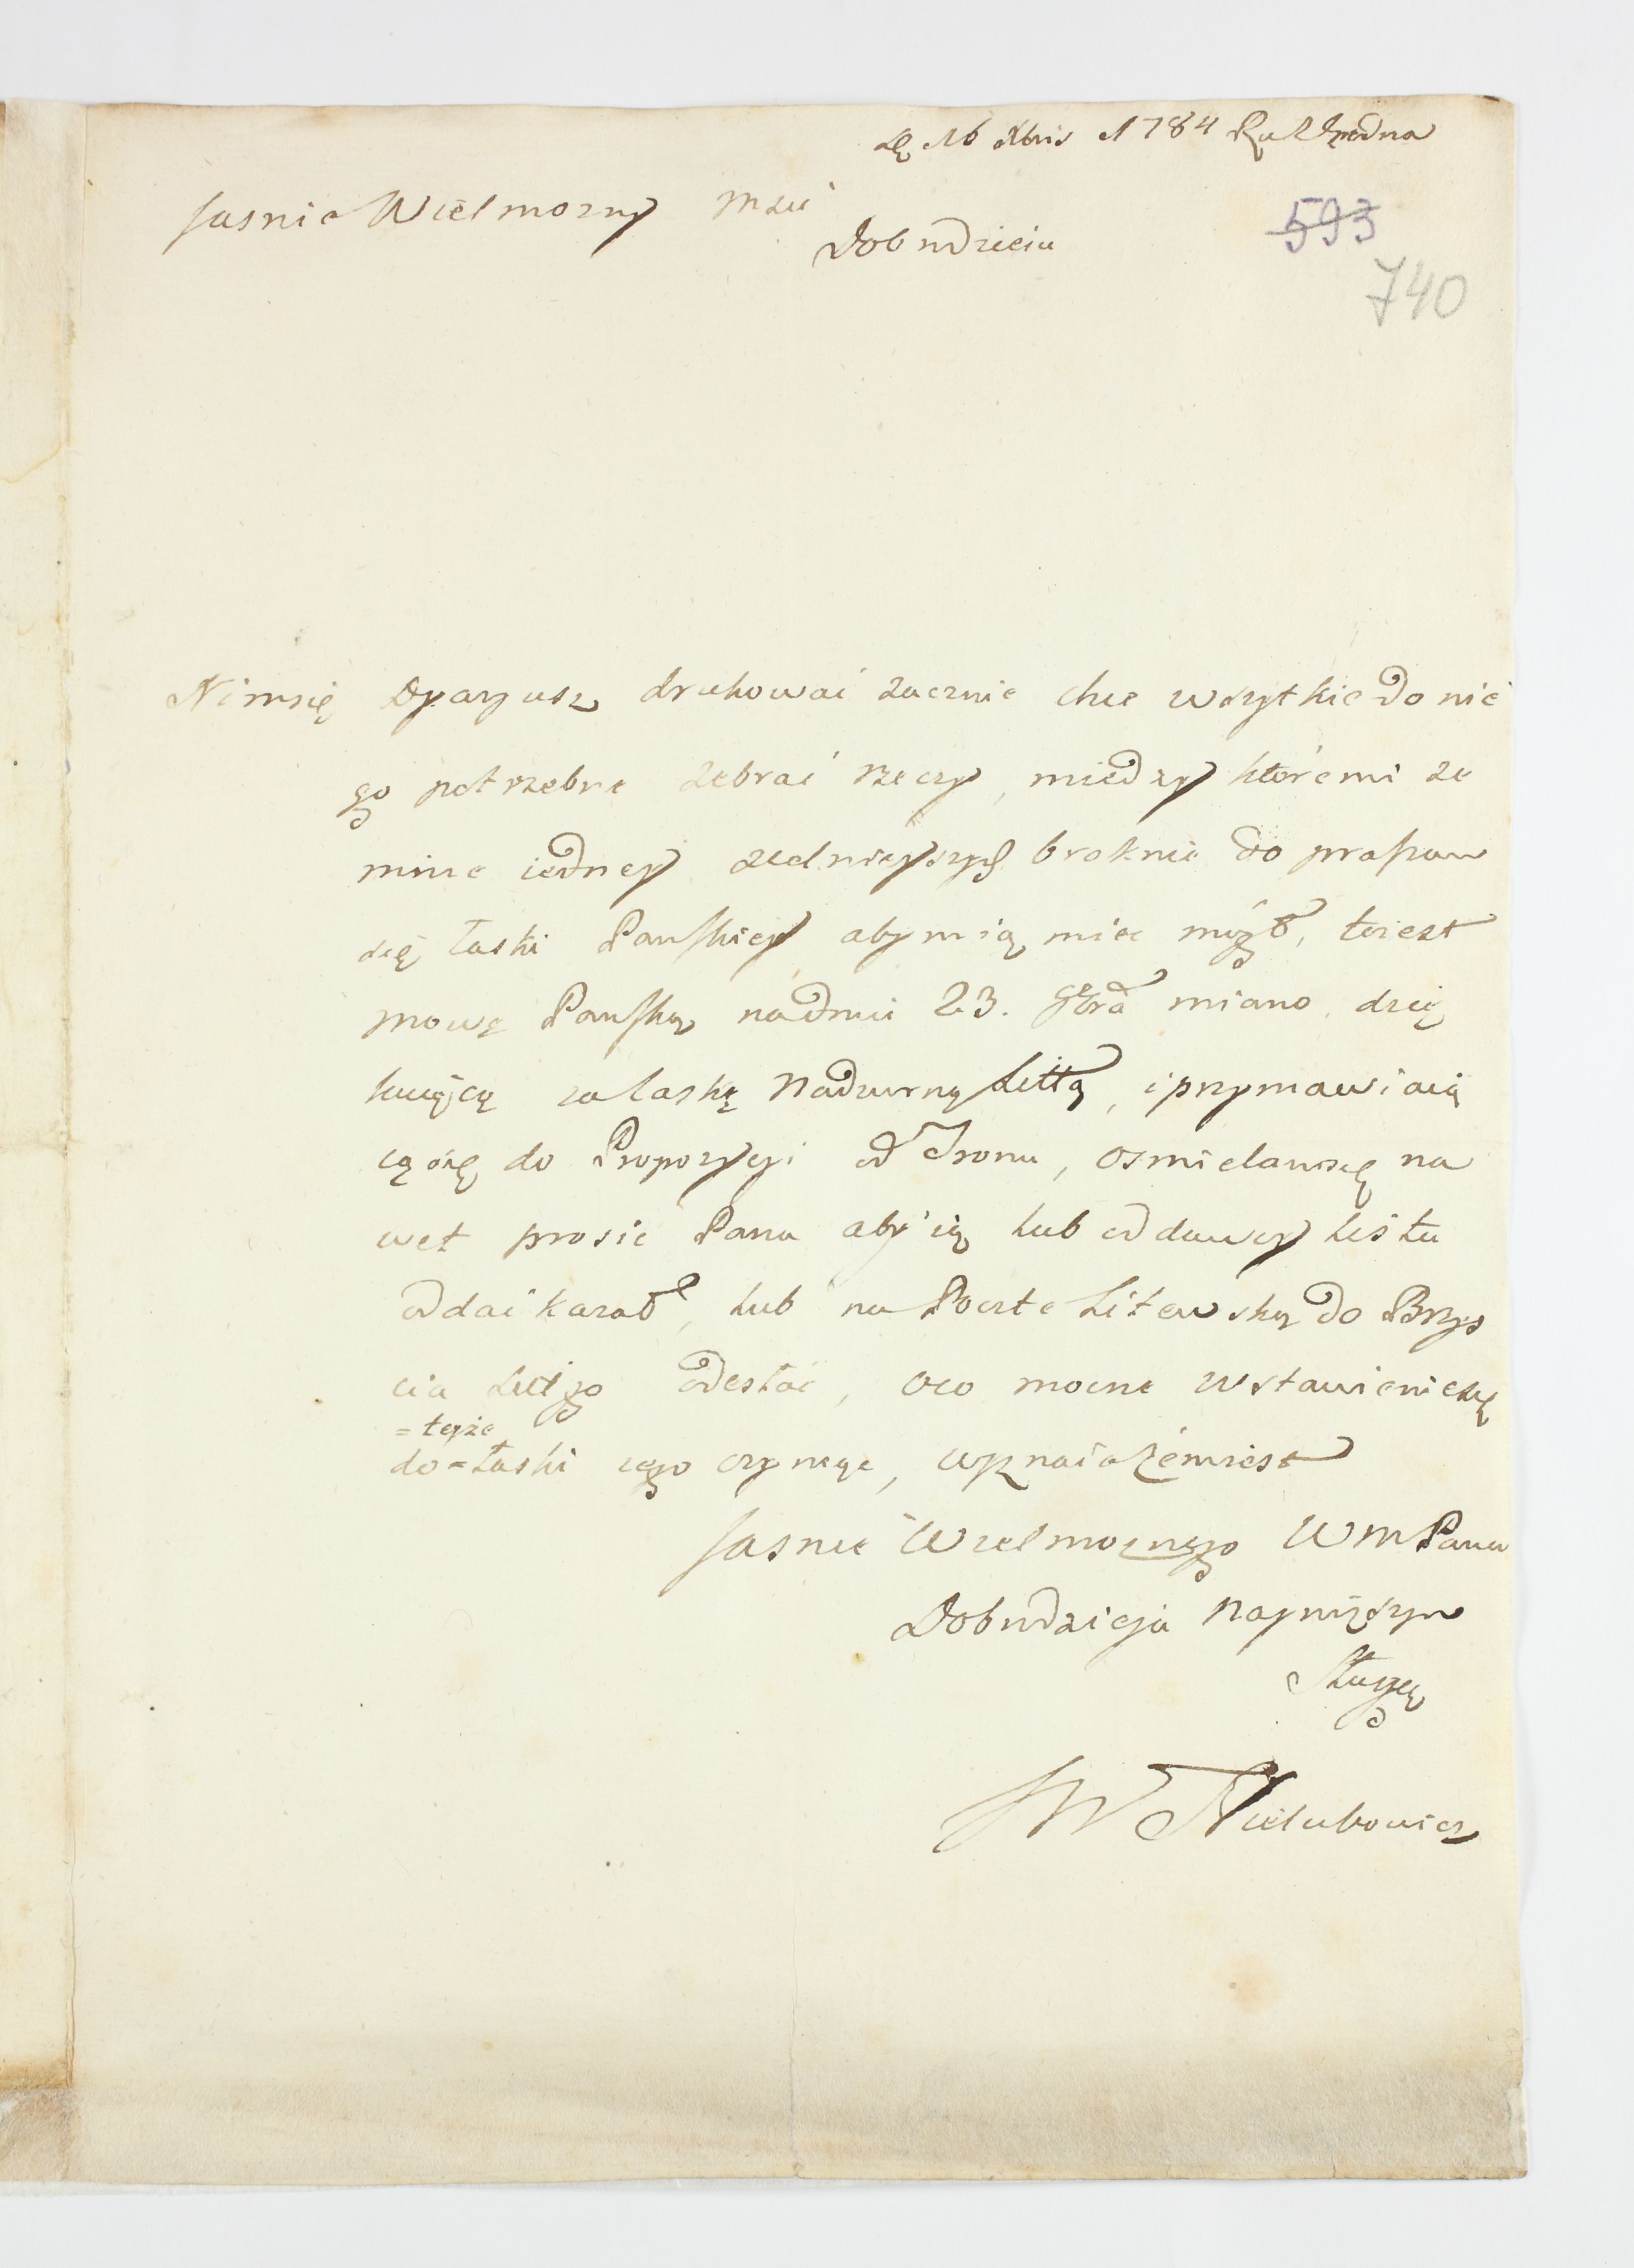 16 Xbris 1784
Jasnie Wielmozny Msci
Dobrodzieiu
593
740
Nim się Dyaryusz drukować zacznie chcę wszytkie do nie
go potrzebne zebrać rzeczy, miedzy ktoremi ze
mnie iedney celnieyszych braknie do
się łaski Panskiey abym ią miec mógł, toiest
mowę Panską na dniu 23. miano, dzię
kuiącą za laskę Nadworną Littą, i przymawiaią
cą się do Propozycyi od Tronu, osmielam się na
wet prosic Pana aby ią lub oddawcy listu
oddać kazał, lub na Poczte Litewską do Brzes
cia Littgo odesłać, oco mocne wstawienie się
=teyże
do=łaski iego czynięc, wyznaią żem iest
Jasnie Wielmoznego WMPana
Dobrodzieja nayniższym
Sługą
JW Nielubowicz